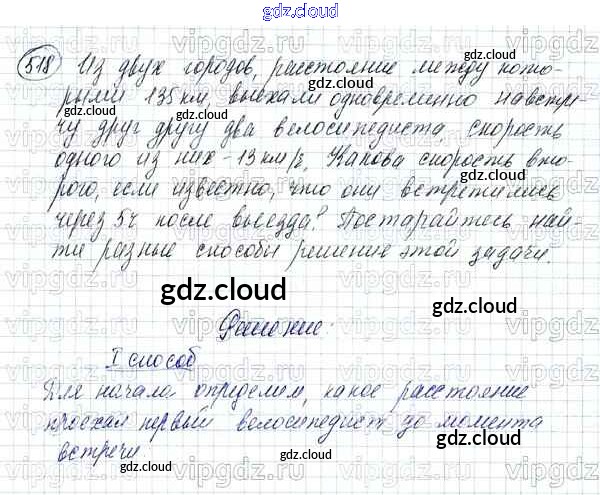 gdz.cloud
518 Из двух городов, расстояние между кото-
рыми 135 км, выехали одновременно навстре-
чу друг другу два велосипедиста, скорость
одного из них - 13 км/ч, Какова скорость вто-
рого, если известно, что они встретились
через 5ч после выезда? Постарайтесь най-
ти разные способы решение этой задачи.
gdz.cloud
gdz.cloud
Решение:
I способ
Для начала определим, какое расстояние
проехал первый велосипедист до момента
встречи.